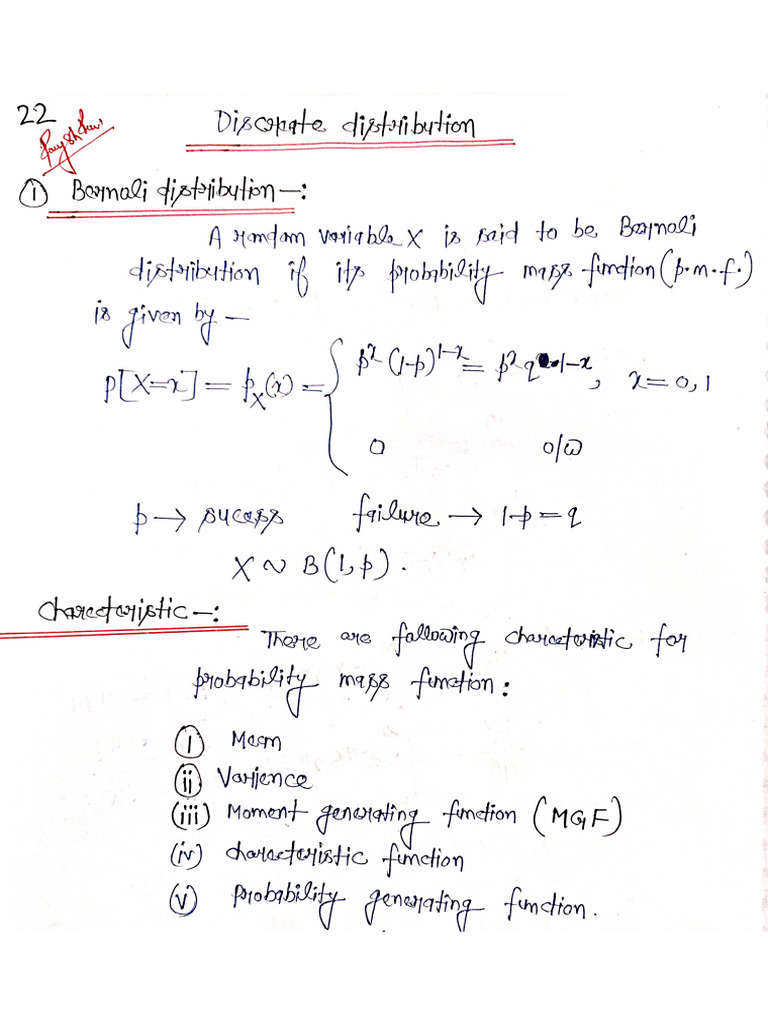 22
Discrate distribution
① Bernali distribution –:
A random variable X is said to be Bernali
distribution if its probability mass function (p.m.f.)
is given by –
P[X=x] = p_X(x) = { p^x (1-p)^{1-x} = p^x q^{1-x}, x=0,1
0 o/w
p → sucess failure → 1-p = q
X ~ B(1,p).
Charecteristic –:
There are following charecteristic for
probability mass function :
(i) Mean
(ii) Varience
(iii) Moment generating function (MGF)
(iv) characteristic function
(v) probability generating function.